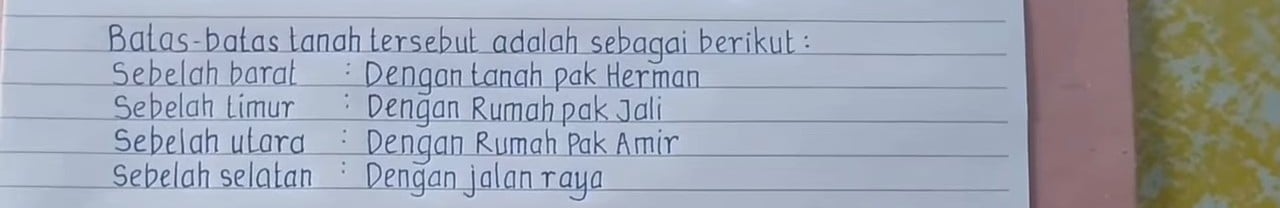 Batas-batas tanah tersebut adalah sebagai berikut :
Sebelah barat : Dengan tanah pak Herman
Sebelah timur : Dengan Rumah pak Jali
Sebelah utara : Dengan Rumah Pak Amir
Sebelah selatan : Dengan jalan raya